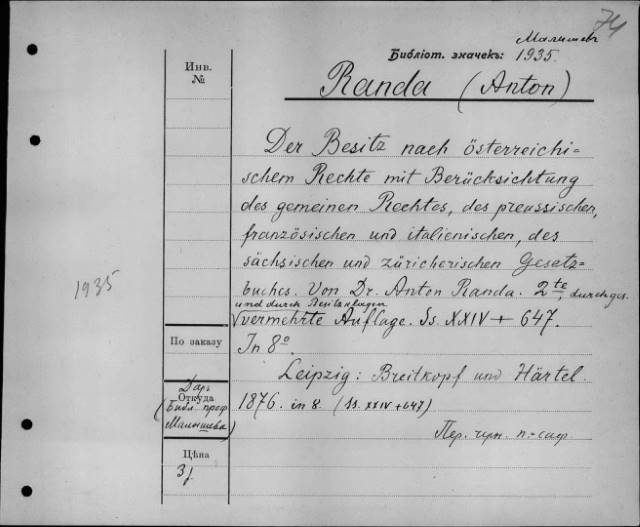 74
Малышев
Библіот. значекъ: 1935.
Инв.
№
Randa (Anton)
Der Besitz nach österreichi-
schem Rechte mit Berücksichtung
des gemeinen Rechtes, des preussischen,
französischen und italienischen, des
sächsischen und züricherischen Gesetz-
1935
buches. Von Dr. Anton Randa. 2te, durchges.
und durch Besitzklagen
vermehrte Auflage. Ss. XXIV + 647.
По заказу
In 8o.
Leipzig: Breitkopf und Härtel.
Даръ
Откуда
(Библ. проф.
Малышева)
1876. in 8. (SS. XXIV + 647)
Пер. чрн. п.-саф
Цѣна
3 р.